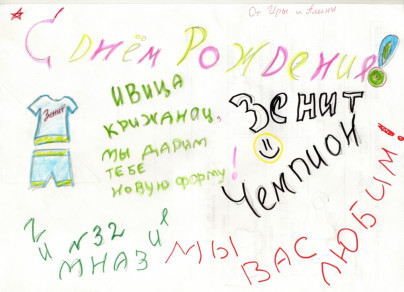 От Иры и Алины
С Днём Рождения!
Зенит
ИВИЦА
КРИЖАНАЦ,
МЫ ДАРИМ
ТЕБЕ
НОВУЮ ФОРМУ!
ЗЕНИТ
ЧЕМПИОН
И №32
МЫ
ВАС
ЛЮБИМ!